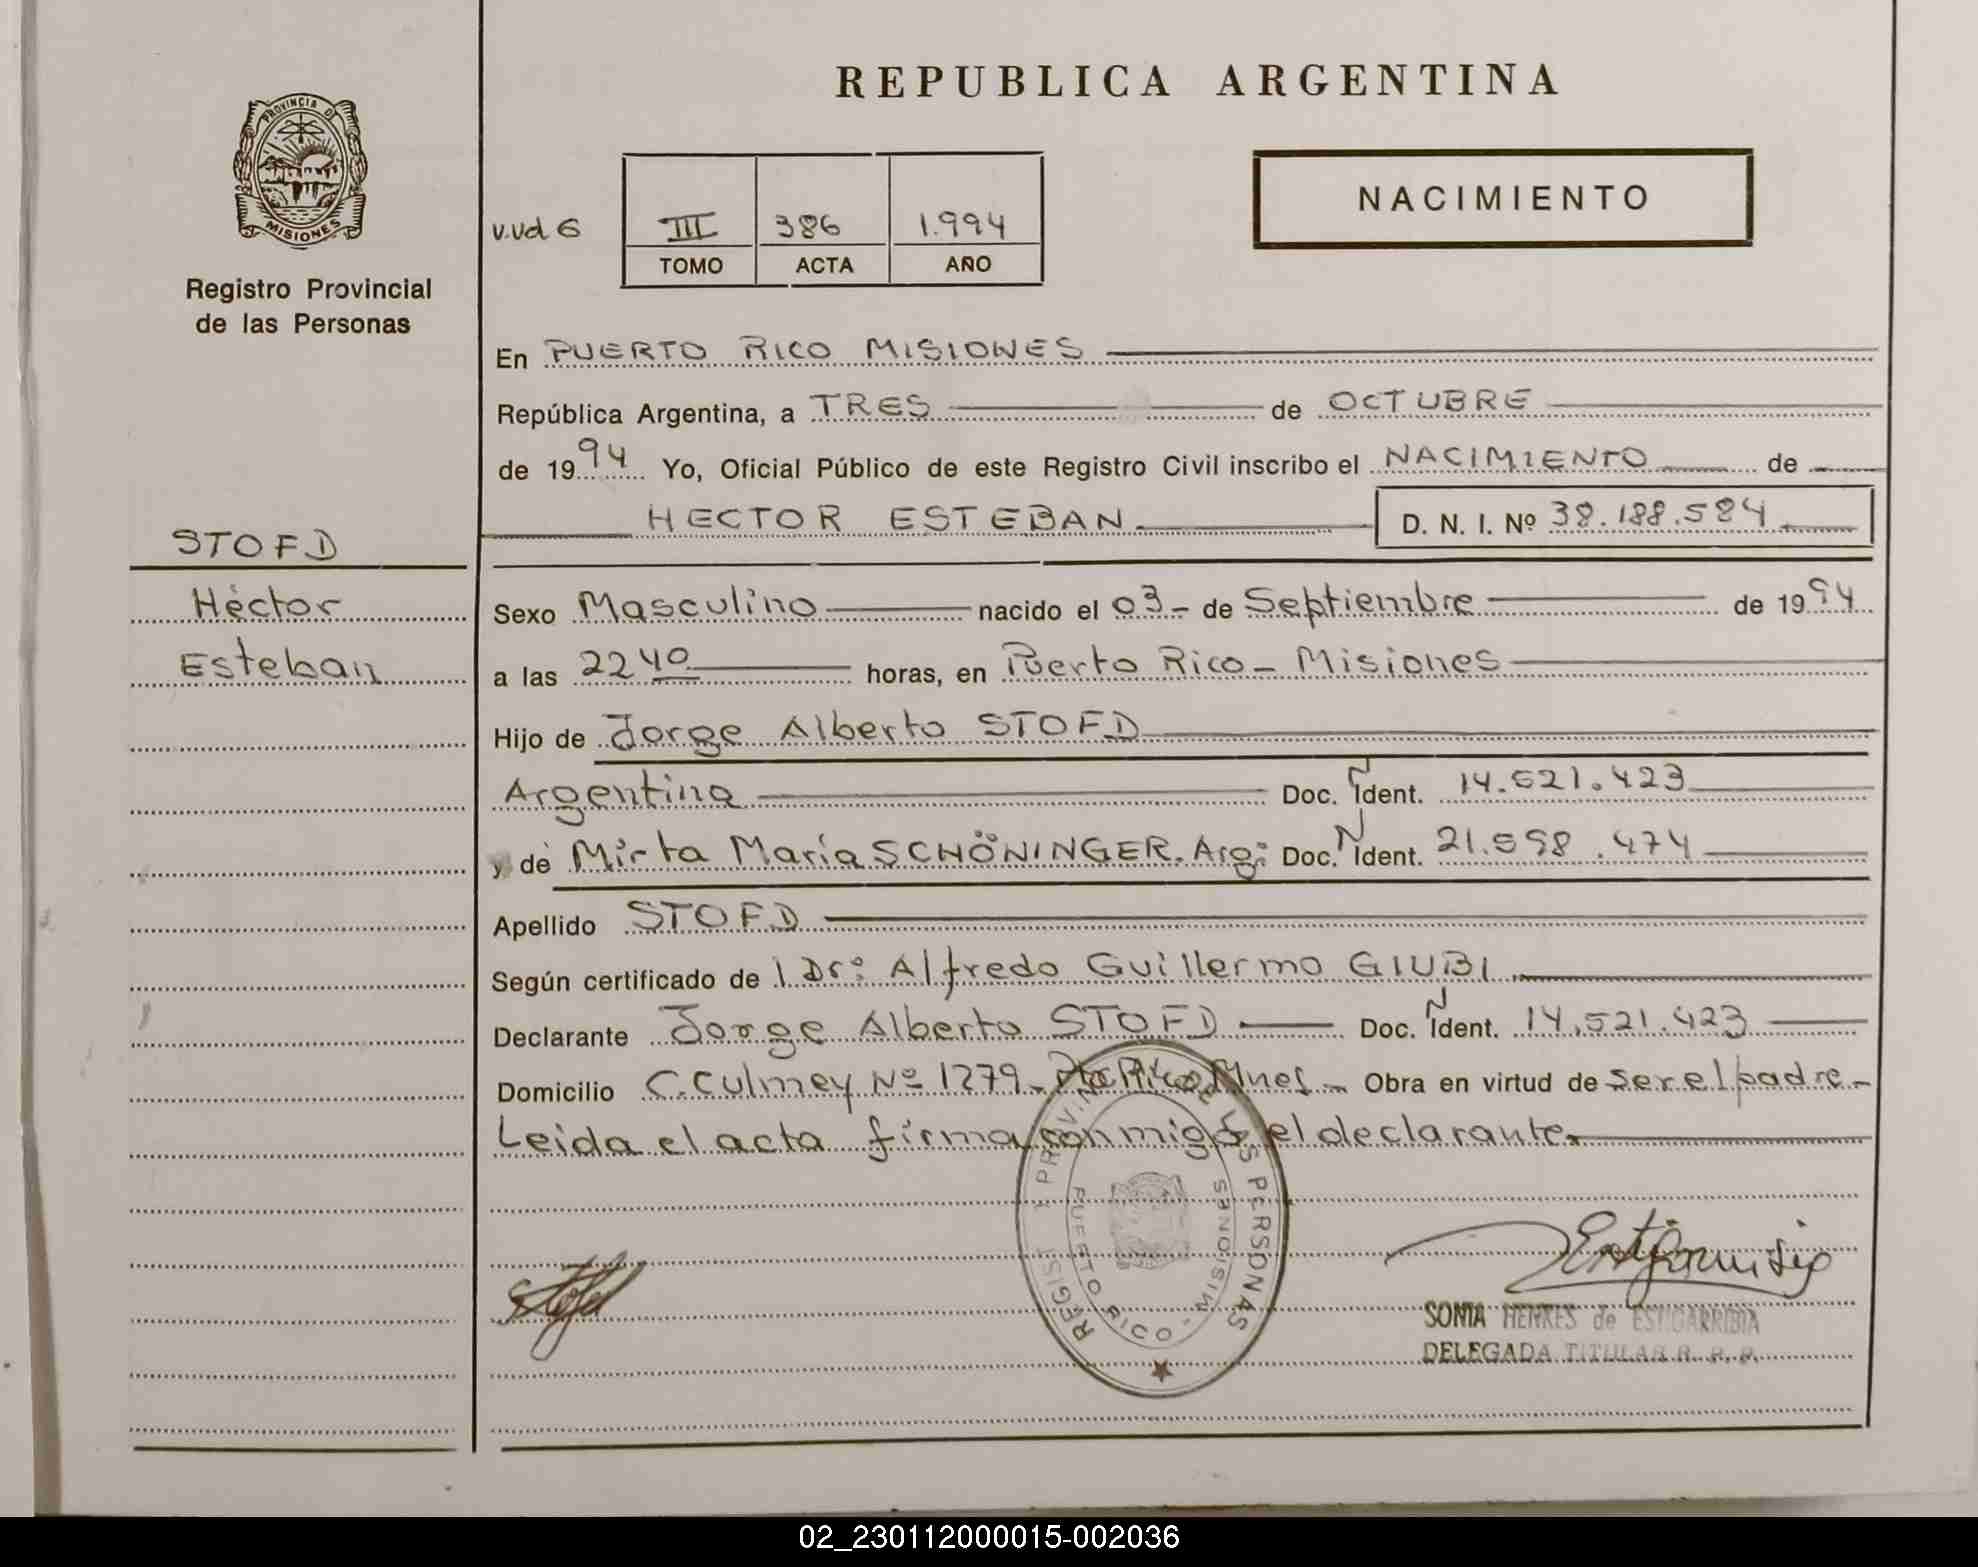 REPUBLICA ARGENTINA
PROVINCIA DE
MISIONES
Registro Provincial
de las Personas
NACIMIENTO
III 386 1.994
TOMO ACTA AÑO
En PUERTO RICO MISIONES
República Argentina, a TRES de OCTUBRE
de 1994 Yo, Oficial Público de este Registro Civil inscribo el NACIMIENTO de
HECTOR ESTEBAN D. N. I. Nº 38.188.584
STOFD
Héctor
Esteban
Sexo Masculino nacido el 03- de Septiembre de 1994
a las 22 40 horas, en Puerto Rico - Misiones
Hijo de Jorge Alberto STOFD
Argentina Doc. N Ident. 14.521.423
y de Mirta María SCHÖNINGER. Arg: Doc. N Ident. 21.598.474
Apellido STOFD
Según certificado de l Dr: Alfredo Guillermo GIUBI
Declarante Jorge Alberto STOFD Doc. N Ident. 14.521.423
Domicilio C. Culmey Nº 1279 - Pto Rico Mnes - Obra en virtud de ser el padre -
Leida el acta firma con migo el declarante.
REGIST PROV. DE LAS PERSONAS
PUERTO RICO - MISIONES
SONIA HENKES de ESTIGARRIBIA
DELEGADA TITULAR R. P. P.
02_230112000015-002036